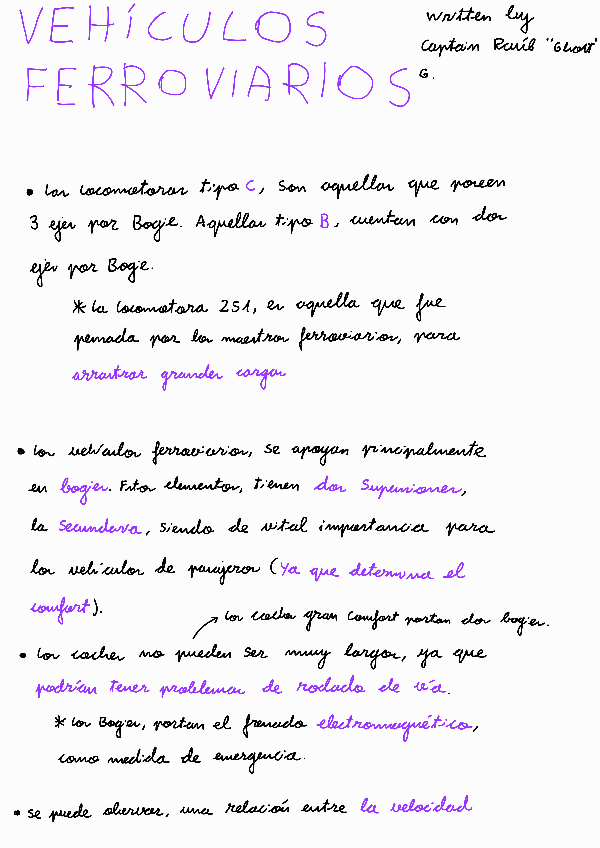 VEHÍCULOS
FERROVIARIOS
Written by
Captain Raúl "Ghost"
G.
• Las locomotoras tipo C, son aquellas que poseen
3 ejes por Bogie. Aquellas tipo B, cuentan con dos
ejes por Bogie.
* La locomotora 251, es aquella que fue
pensada por los maestros ferroviarios, para
arrastrar grandes cargas
• Los vehículos ferroviarios, se apoyan principalmente
en bogies. Estos elementos, tienen dos Suspensiones,
la Secundaria, siendo de vital importancia para
los vehículos de pasajeros (Ya que determina el
comfort).
→ Los coches gran Comfort portan dos bogies.
• Los coches no pueden ser muy largos, ya que
podrían tener problemas de rodado de vía.
* Los Bogies, portan el frenado electromagnético,
como medida de emergencia.
• Se puede observar, una relación entre la velocidad